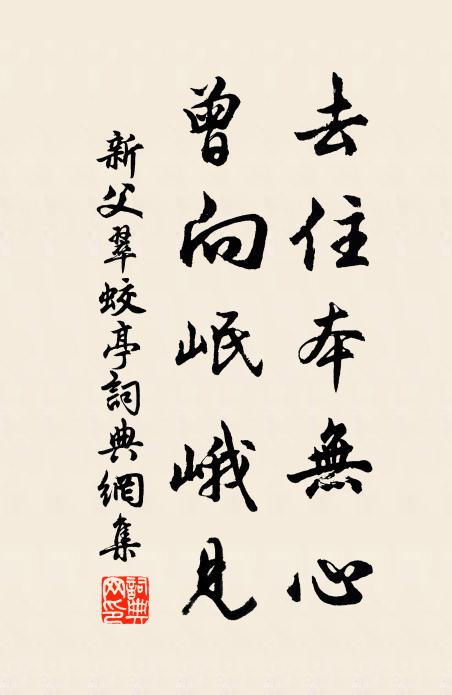 去住本無心
曾向岷峨見
新父翠蛟亭詞典網集
詞典网印